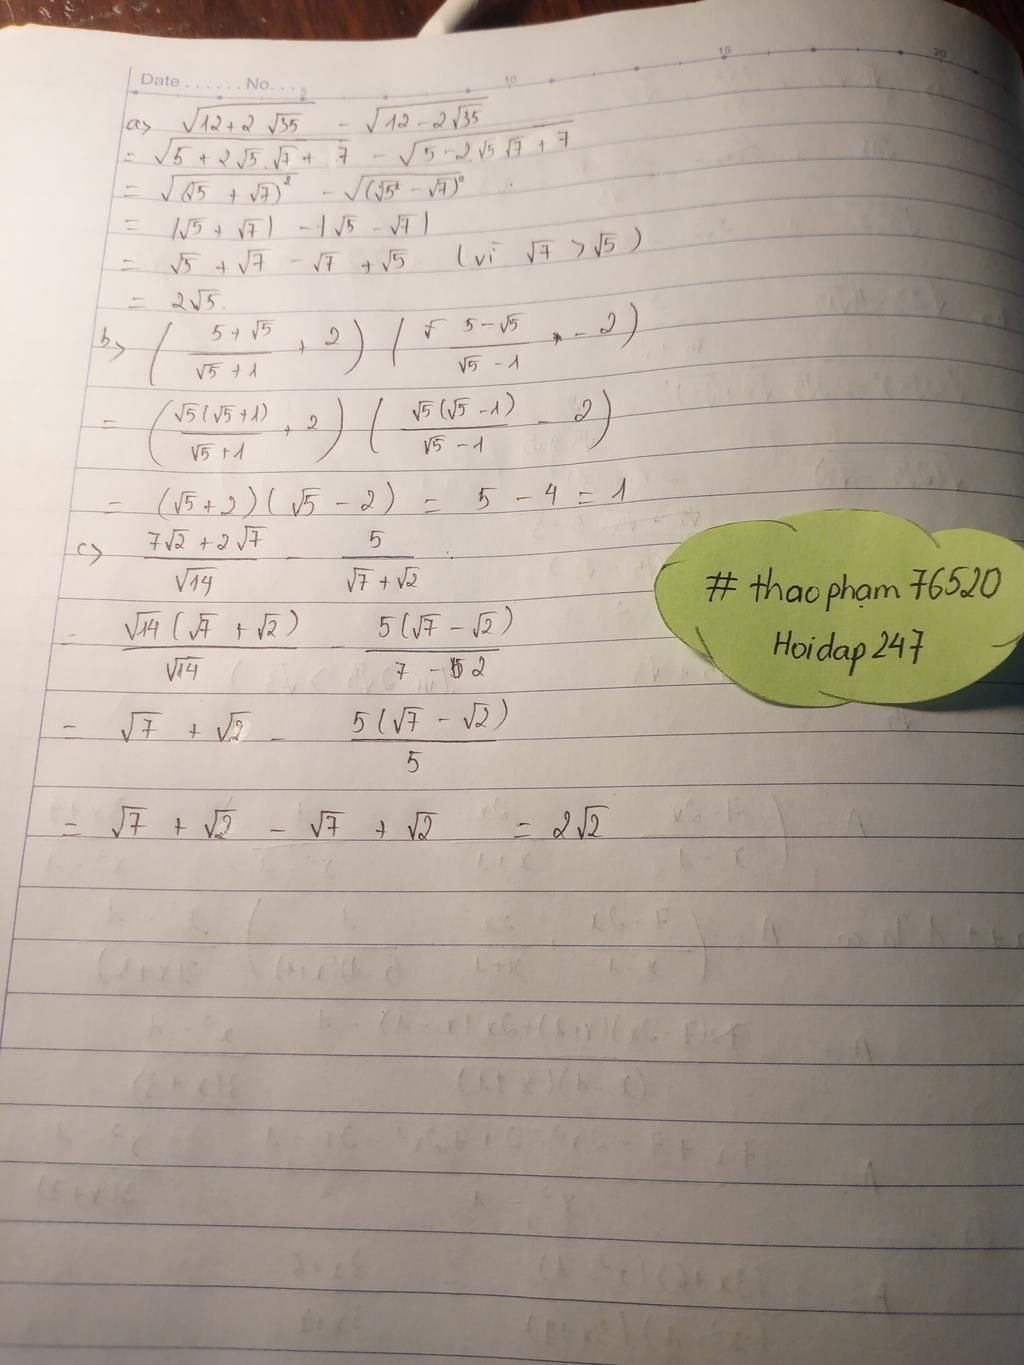 Date ...... No. ...
5 10 15 20
a> √(12+2√35) - √(12-2√35)
= √(5+2√5.√7+7) - √(5-2√5√7+7)
= √((√5+√7)²) - √((√5²-√7)²)
= |√5+√7| - |√5-√7|
= √5+√7-√7+√5 (vì √7>√5)
= 2√5.
b> ((5+√5)/(√5+1) + 2)((5-√5)/(√5-1) - 2)
= ((√5(√5+1))/(√5+1) + 2)((√5(√5-1))/(√5-1) - 2)
= (√5+2)(√5-2) = 5-4 = 1
c> (7√2+2√7)/√14 - 5/(√7+√2)
= (√14(√7+√2))/√14 - (5(√7-√2))/(7-2)
= √7+√2 - (5(√7-√2))/5
= √7+√2-√7+√2 = 2√2
# thaophạm76520
Hoidap247